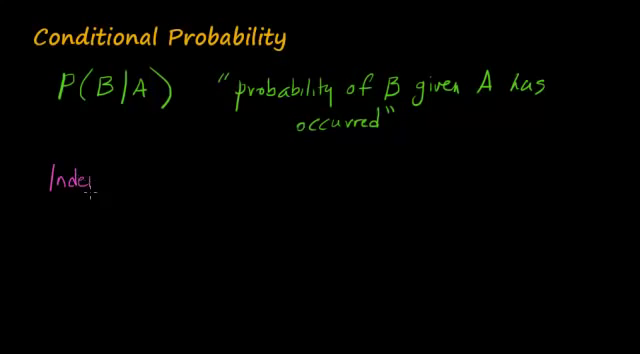 Conditional Probability
P(B/A) "probability of B given A has
occurred"
Inde